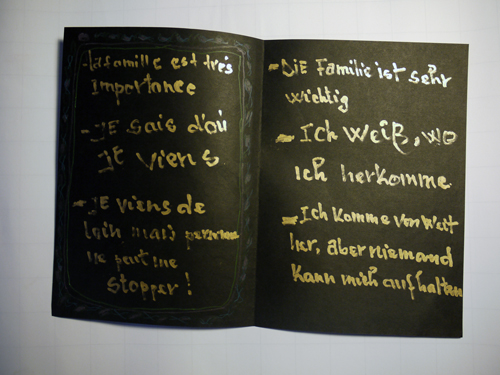 - la famille est très
importance
- JE sais d'où
JE viens
- JE viens de
loin mais personne
ne peut me
stopper !
- DiE Familie ist sehr
wichtig
- Ich weiß, wo
ich herkomme
- Ich komme von weit
her, aber niemand
kann mich aufhalten